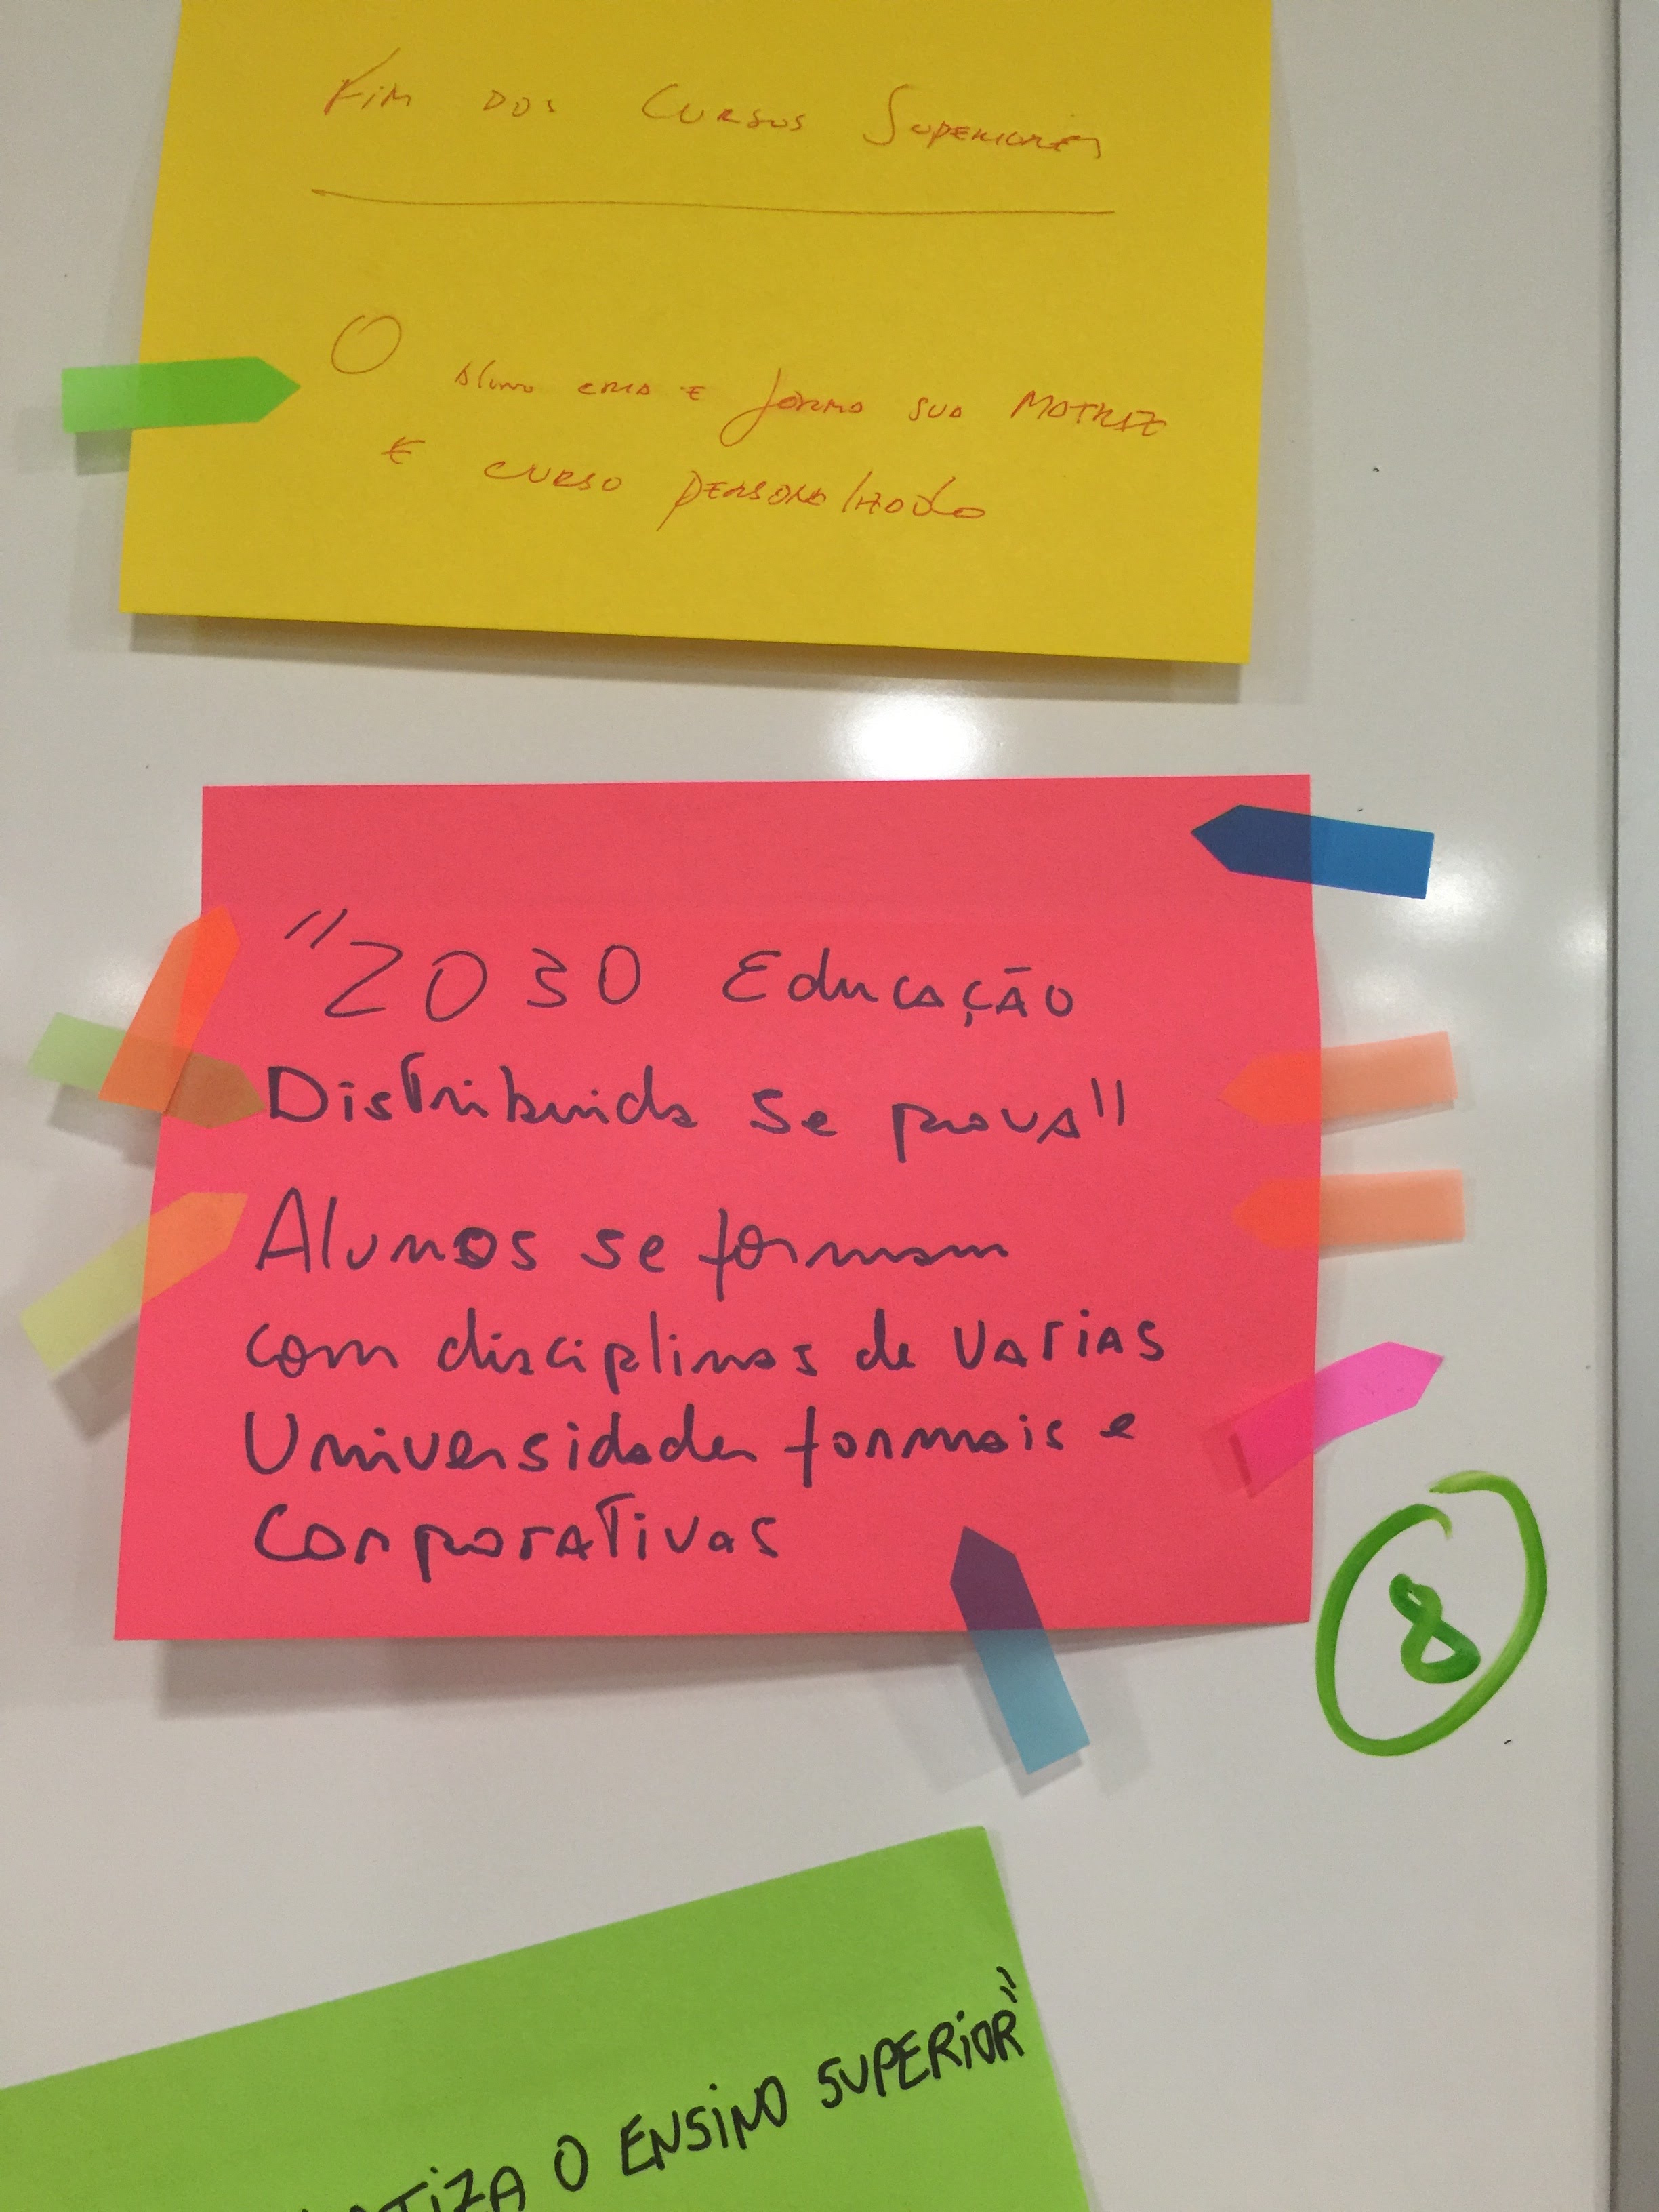 FIM DOS CURSOS SUPERIORES
O aluno cria e forma sua MATRIZ
E CURSO PERSONALIZADO
"2030 Educação
Distribuida se prova"
Alunos se formam
com disciplinas de varias
Universidades formais e
Corporativas
8
TIZA O ENSINO SUPERIOR"